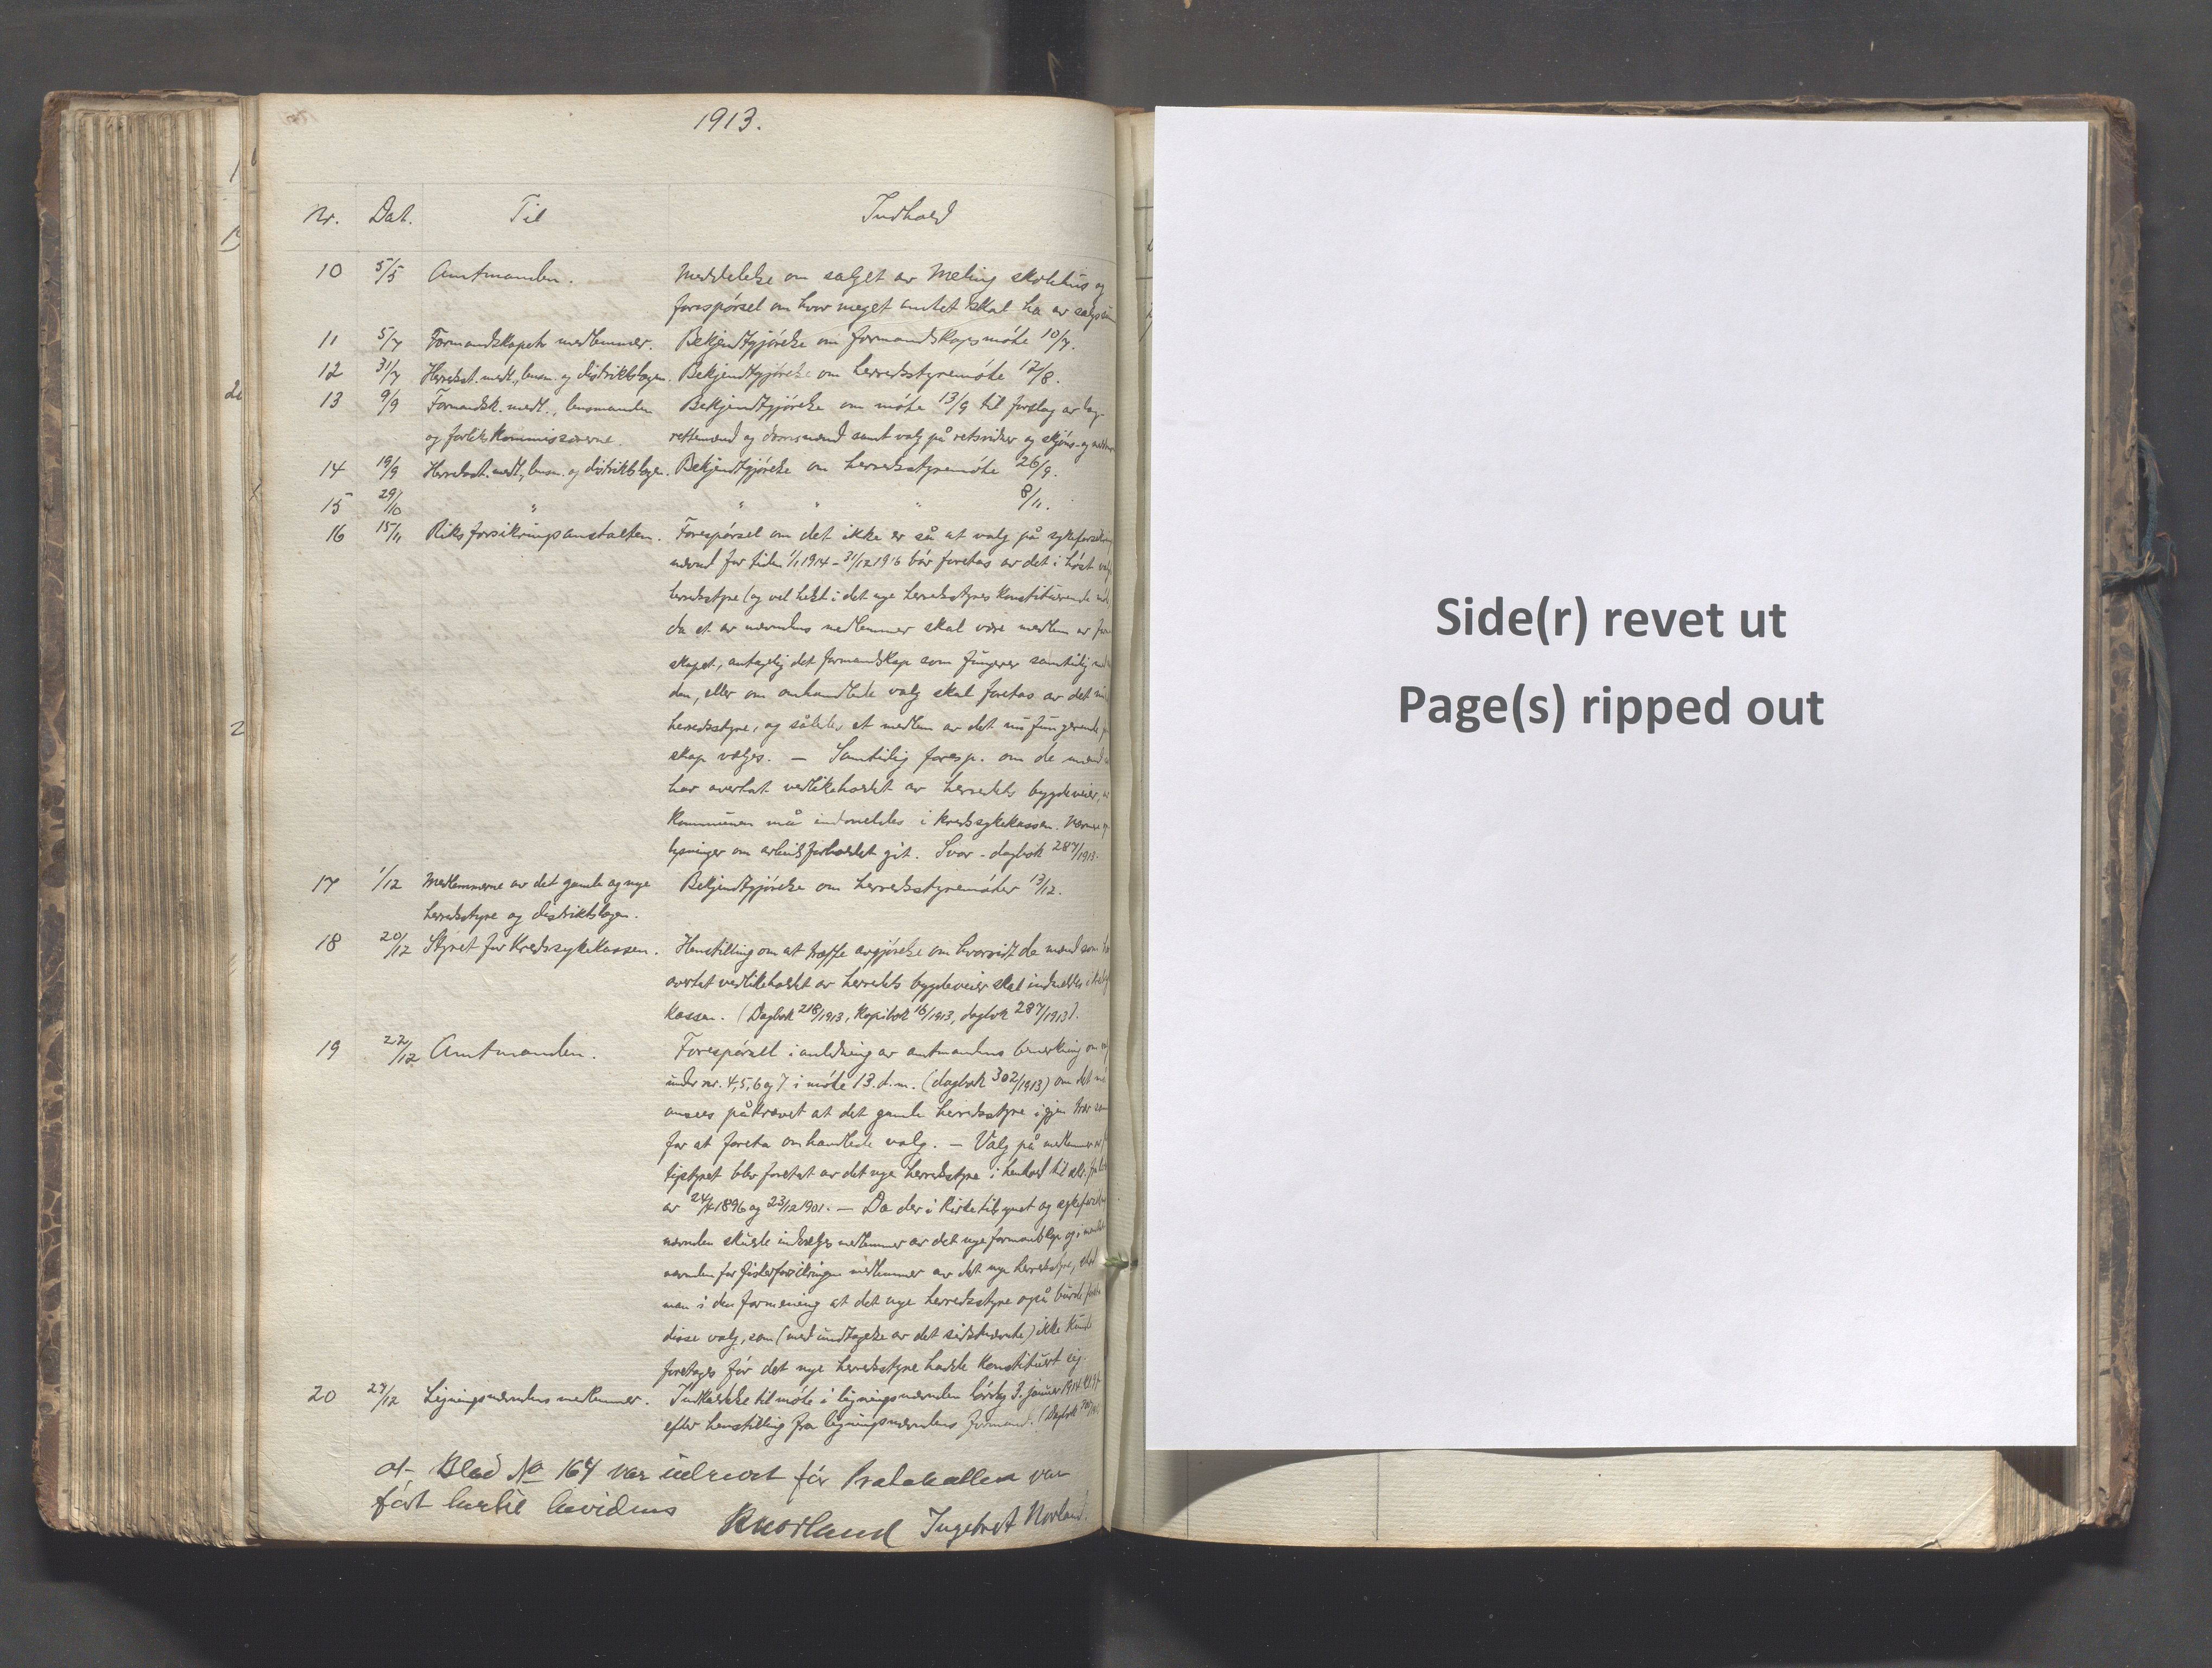 1913.
Nr. Dat. Til Indhold
10 5/5 Amtmanden. Meddelelse om salget av Meling skolehus og
forespörsel om hvor meget amtet skal ha av
11 5/7 Formandskapets medlemmer. Bekjendtgjörelse om formandskapsmöte 10/7.
12 31/7 Herredsst. medl., lensm. og distriktslægen. Bekjendtgjörelse om herredsstyremöte 12/8.
13 9/9 Formandsk. medl., lensmanden Bekjendtgjörelse om möte 13/9 til forslag av lag-
og forlikskommissærerne. rettemænd og domsmænd samt valg på retsvidner og skjöns- og
14 19/9 Herredsst. medl., lensm. og distriktslægen. Bekjendtgjörelse om herredsstyremöte 26/9.
15 29/10 " " " " 8/11.
16 15/11 Riksforsikringsanstalten. Forespörsel om det ikke er så at valg på
nævnd for tiden 1/1 1914 - 31/12 1916 bör foretas av det i höst
herredsstyre (og vel helst i det nye herredsstyres konstituerende
da et av nævndens medlemmer skal være medlem av
skapet, antagelig det formandskap som fungerer samtidig
den, eller om omhandlede valg skal foretas av det
herredsstyre, og således et medlem av det nu fungerende
skap vælges. — Samtidig foresp. om de mænd
har overtat vedlikeholdet av herredets bygdeveier,
kommunen må indmeldes i kredssykekassen. Nærmere
lysninger om arbeidsforholdet git. Svar - dagbok 287/1913.
17 1/12 Medlemmerne av det gamle og nye Bekjendtgjörelse om herredsstyremöter 13/12.
herredsstyre og distriktslægen.
18 20/12 Styret for kredssykekassen. Henstilling om at træffe avgjörelse om hvorvidt de mænd som
overtat vedlikeholdet av herredets bygdeveier skal indmeldes i
kassen. (Dagbok 218/1913, kopibok 16/1913, dagbok 287/1913).
19 22/12 Amtmanden. Forespörsel i anledning av amtmandens bemerkning om
under nr. 4, 5, 6 og 7 i möte 13. d.m. (dagbok 302/1913) om det
ansees påkrævet at det gamle herredsstyre igjen trær
for at foreta omhandlede valg. — Valg på medlemmer av
blev foretat av det nye herredsstyre i henhold til
av 1896 og 23/12 1901. — Da der i kirketilsynet og
nævnden skulde indvælges medlemmer av det nye formandskap og i
nævnden for fiskerforsikringen medlemmer av det nye herredsstyre,
man i den formening at det nye herredsstyre også burde
disse valg, som (med undtagelse av det sidstnævnte) ikke kunde
foretages för det nye herredsstyre hadde konstituert sig.
20 27/12 Ligningsnævndens medlemmer. Indkaldelse til möte i ligningsnævnden lördag 3. januar 1914
efter henstilling fra ligningsnævndens formand. (Dagbok
at Blad No 164 var udrevet för Protokollen var
fört hertil bevidnes
Ingebret Norland.
Side(r) revet ut
Page(s) ripped out